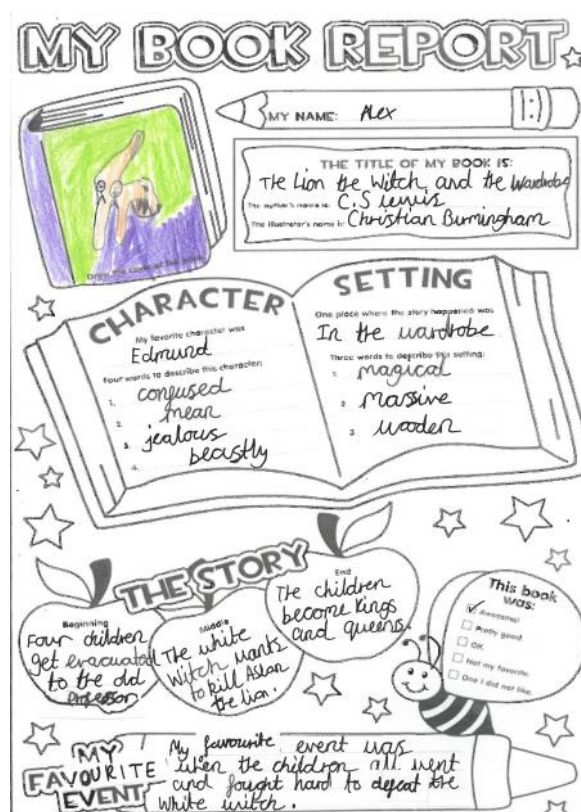 MY BOOK REPORT
MY NAME: Alex
THE TITLE OF MY BOOK IS:
The Lion the Witch and the Wardrobe
The author's name is: C.S Lewis
The illustrator's name is: Christian Burmingham
Draw the cover of the book
CHARACTER
My favorite character was
Edmund
Four words to describe this character:
1. confused
2. mean
3. jealous
4. beastly
SETTING
One place where the story happened was
In the wardrobe
Three words to describe this setting:
1. magical
2. massive
3. wooden
THE STORY
Beginning
Four children
get evacuated
to the old
professor.
Middle
The white
Witch wants
to kill Aslan
the lion.
End
The children
become Kings
and queens.
This book
was:
Awesome!
Pretty good
OK
Not my favorite
One I did not like.
MY
FAVOURITE
EVENT
My favourite event was
when the children all went
and fought hard to defeat the
white witch.